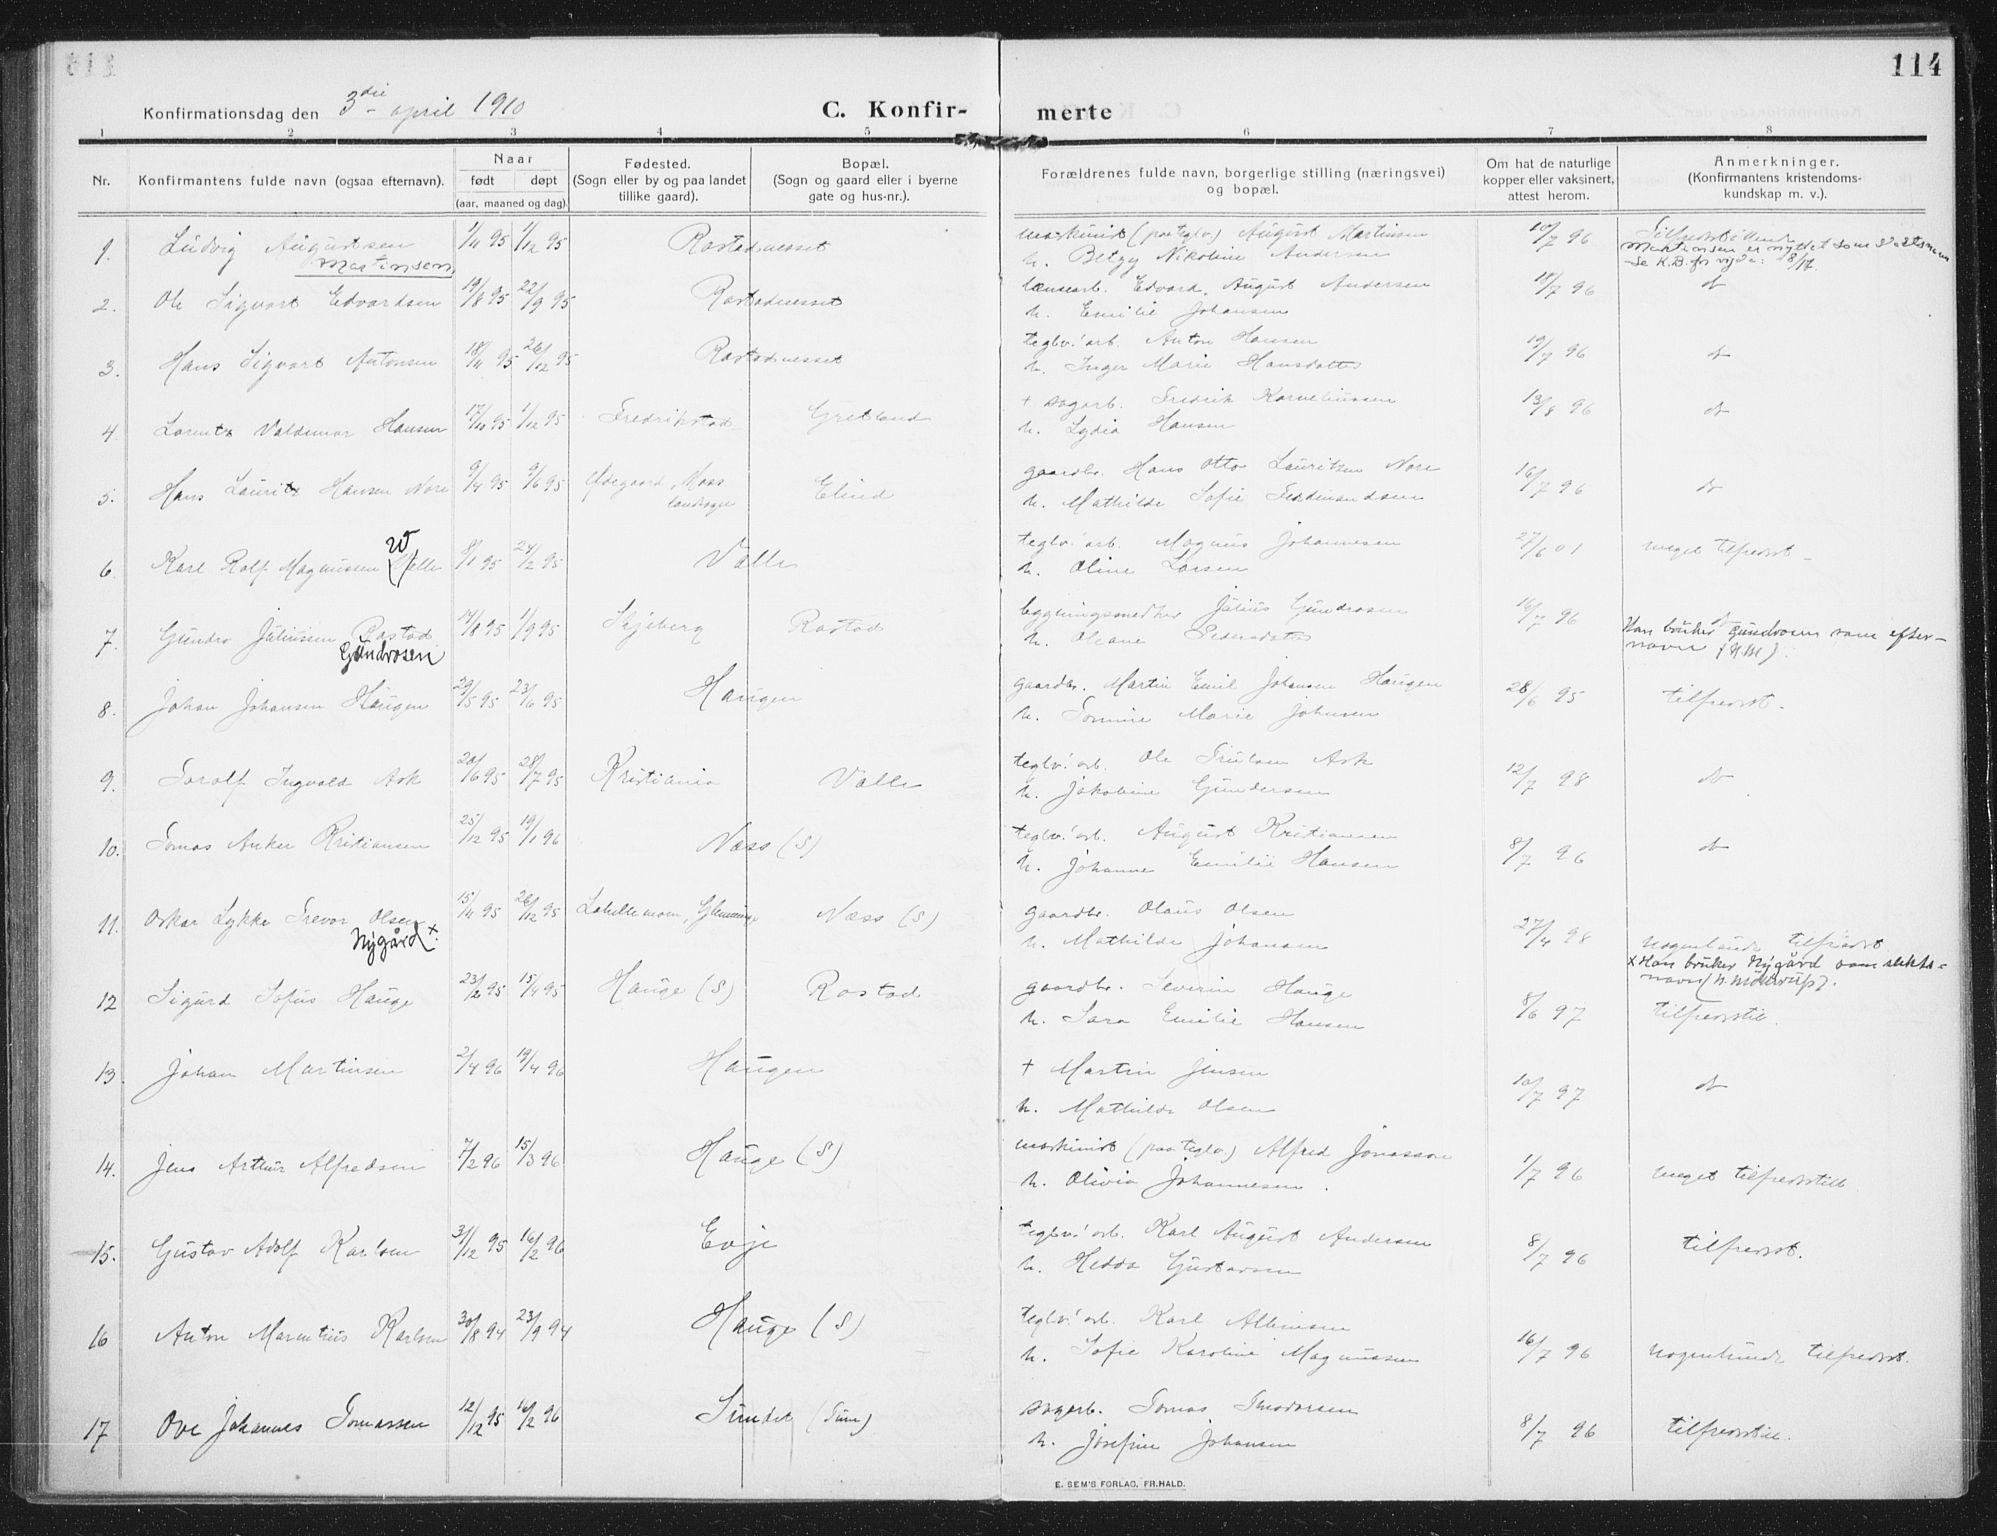 114
Konfirmationsdag den 3die april 1910
C. Konfir-
merte
1 2 3 4 5 6 7 8
Nr.
Konfirmantens fulde navn (ogsaa efternavn).
Naar
født døpt
(aar, maaned og dag).
Fødested.
(Sogn eller by og paa landet
tillike gaard).
Bopæl.
(Sogn og gaard eller i byerne
gate og hus-nr.).
Forældrenes fulde navn, borgerlige stilling (næringsvei)
og bopæl.
Om hat de naturlige
kopper eller vaksinert,
attest herom.
Anmerkninger.
(Konfirmantens kristendoms-
kundskap m. v.).
1. Ludvig Augustsen 1/11 95 1/12 95 Rostadnesset maskinist (paa teglv.) August Martinsen 10/7 96 Tilfredsstillende
Martinsen
h. Betzy Nikoline Andersen
2. Ole Sigvart Edvardsen 19/8 95 22/9 95 Rostadnesset lænsearb. Edvard August Andersen 18/7 96 do
h. Emilie Johansen
3. Hans Sigvart Antonsen 18/11 95 26/12 95 Rostadnesset teglv.'arb. Anton Hansen 19/7 96 do
h. Inger Marie Hansdatter
4. Lorentz Valdemar Hansen 17/10 95 1/12 95 Fredrikstad Gretland + sagarb. Fredrik Korneliussen 13/8 96 do
h. Lydia Hansen
5. Hans Lauritz Hansen Nore 9/4 95 9/6 95 Ødegaard, Moss Elind gaardbr. Hans Otto Lauritzen Nore 16/7 96 do
landsogn
h. Mathilde Sofie Ferdinandsen
6. Karl Rolf Magnussen Valle 8/1 95 24/2 95 Valle teglv.'arb. Magnus Johannesen 27/6 01 meget tilfredsst.
W
h. Oline Larsen
7. Gundro Juliussen Rostad 14/8 95 1/9 95 Skjeberg Rostad bygningssnedker Julius Gundrosen 16/7 96 do
Gundrosen
h. Oleane Pedersdatter
Han bruker Gundrosen som efter-
navn (H.M)
8. Johan Johansen Haugen 29/5 95 23/6 95 Haugen gaardbr. Martin Emil Johansen Haugen 28/6 95 tilfredsst.
h. Tomine Marie Johnsen
9. Toralf Ingvald Ask 20/6 95 28/7 95 Kristiania Valle teglv.'arb. Ole Trulsen Ask 12/7 98 do
h. Jakobine Gundersen
10. Tomas Anker Kristiansen 25/12 95 19/1 96 Næss (S) teglv.'arb. August Kristiansen 8/7 96 do
h. Johanne Emilie Hansen
11. Oskar Lykke Trevor Olsen 15/11 95 26/12 95 Næss (S) gaardbr. Olaus Olsen 27/4 98 nogenlunde tilfredsst
Nygård x.
h. Mathilde Johansen
x Han bruker Nygård som slekts-
navn
12 Sigurd Sofus Hauge 23/2 95 15/4 95 Hauge (S) Rostad gaardbr. Severin Hauge 8/6 97 tilfredsstil.
h. Sara Emilie Hansen
13. Johan Martinsen 2/4 96 19/4 96 Haugen + Martin Jensen 10/7 97 do
h. Mathilde Olsen
14. Jens Arthur Alfredsen 7/2 96 15/3 96 Hauge (S) maskinist (paa teglv.) Alfred Jonasson 1/7 96 meget tilfredsstill
h. Olivia Johannesen.
15. Gustav Adolf Karlsen 31/12 95 16/2 96 Evje teglv.'arb. Karl August Andersen 8/7 96 tilfredsst.
h. Hedda Gustavsen
16 Anton Marentius Karlsen 30/8 94 23/9 94 Hauge (S) teglv.'arb. Karl Albinsen 16/7 96 nogenlunde tilfredsst.
h. Sofie Karoline Magnussen
17 Ove Johannes Tomassen 12/12 95 16/2 96 Sundet (Tune) sagarb. Tomas Teodorsen 8/7 96 tilfredsstill.
h. Josefine Johansen
E. SEM'S FORLAG, FR.HALD.